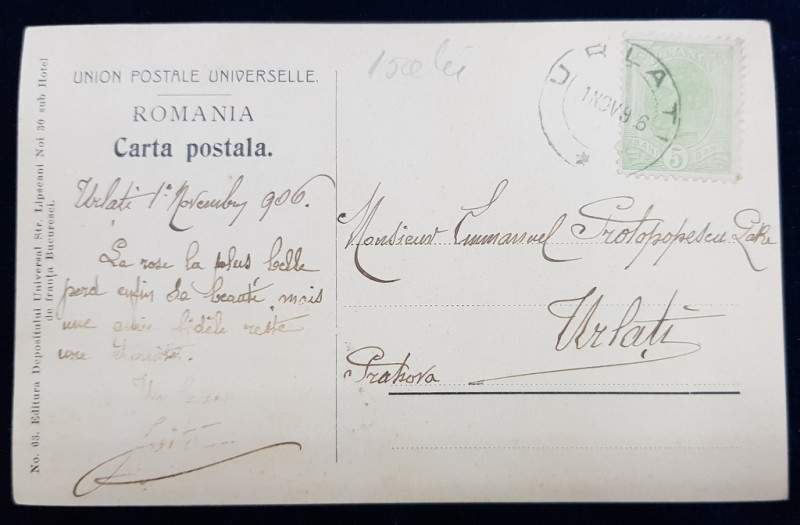 No. 63. Editura Depositului Universal Str. Lipscani Noi 30 sub Hotel
de franța Bucuresci.
UNION POSTALE UNIVERSELLE.
ROMANIA
Carta postala.
Urlati 1ª Novembry 906.
La rose la plus belle
perd enfin sa beauté, mais
une amie fidèle reste
une
150 lei
URLATI
1 NOV 96
ROMANIA
5
BANI
Monsieur Emmanuel Protopopescu Pake
Urlați
Prahova